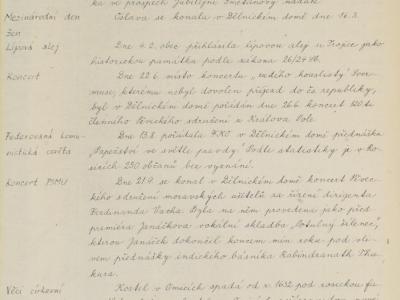 ka ve prospěch Jubilejní Smetanovy nadace.
Mezinárodní den
žen
Oslava se konala v Dělnickém domě dne 16.3.
Lípová alej
Dne 4.2. obec přihlásila lipovou alej u Tropice jako
historickou památku podle zákona 26/24 Sb.
Koncert
Dne 22.6. místo koncertu
muse, kterému nebyl dovolen příjezd do čs republiky,
byl v Dělnickém domě pořádán dne 26.6 koncert 120ti
členného Pěveckého sdružení z Králova Pole.
Federovaná komu-
nistická osvěta
Dne 13.8 pořádala FKO v Dělnickém domě přednášku
„Papežství ve světle pravdy". Podle statistiky je v Ko-
sicích 250 občanů bez vyznání.
Koncert PSMU
Dne 21.9. se konal v Dělnickém domě koncert Pěvec-
kého sdružení moravských učitelů za řízení dirigenta
Ferdinanda Vacha. Byla na něm provedena jako před-
premiéra Janáčkova vokální skladba „Potulný šílenec",
kterou Janáček dokončil koncem min roku pod vli-
vem přednášky indického básníka Rabindranath Tha-
kura.
Věci církevní
Kostel v Omicích spadá od r 1632 pod rosickou fa-